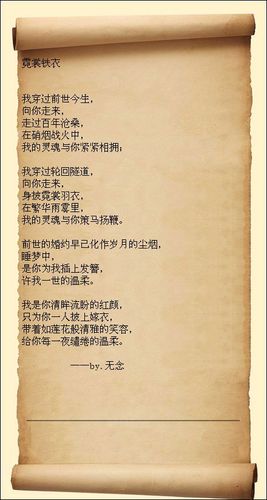 霓裳铁衣
我穿过前世今生，
向你走来，
走过百年沧桑，
在硝烟战火中，
我的灵魂与你紧紧相拥；
我穿过轮回隧道，
向你走来，
身披霓裳羽衣，
在繁华雨雾里，
我的灵魂与你策马扬鞭。
前世的婚约早已化作岁月的尘烟，
睡梦中，
是你为我插上发簪，
许我一世的温柔。
我是你清眸流盼的红颜，
只为你一人披上嫁衣，
带着如莲花般清雅的笑容，
给你每一夜缱绻的温柔。
——by.无念